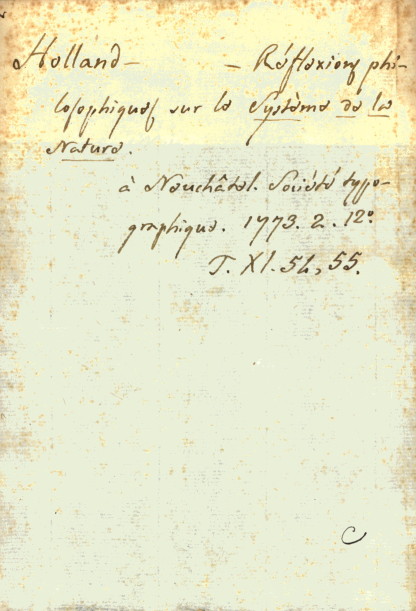 Holland – – Réflexions phi-
losophiques sur le Système de la
Nature.
à Neuchâtel. Société typo-
graphique. 1773. 2. 12º.
T. XI. 54, 55.
C